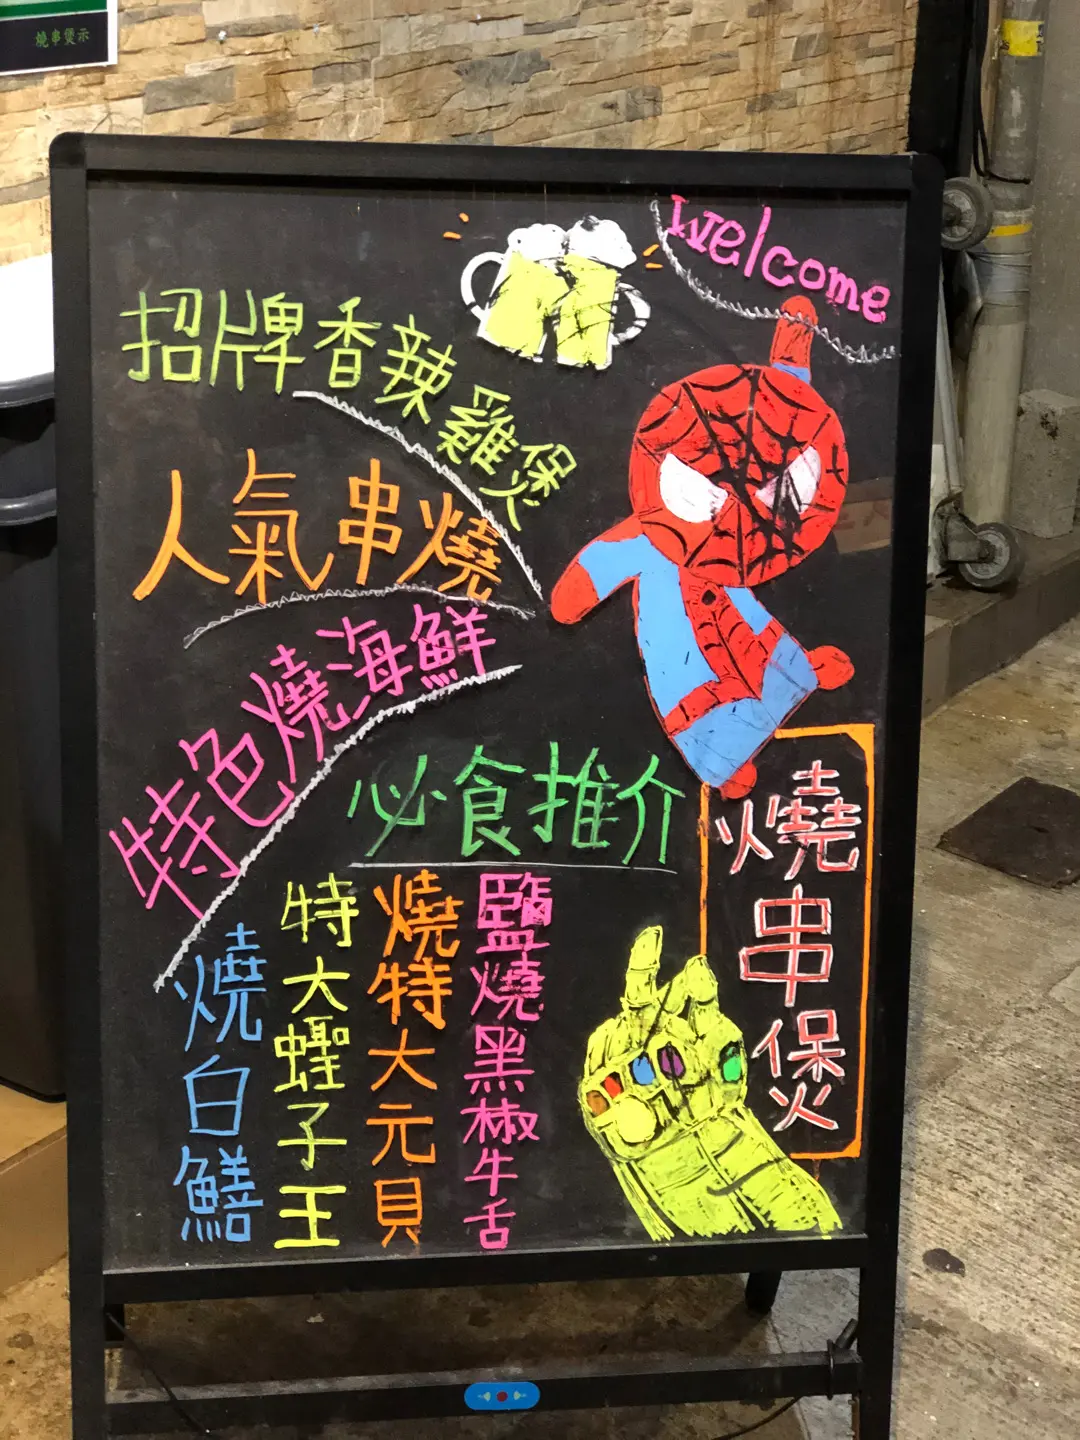 燒串煲示
welcome
招牌香辣雞煲
人氣串燒
特色燒海鮮
必食推介
鹽燒黑椒牛舌
燒特大元貝
特大蟶子王
燒白鱔
燒串煲